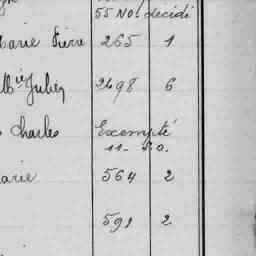 55 Nol decidi
Marie Pierre 265 1
Mie Julien 2698 6
Charles Exempté
11- S.O.
Marie 564 2
591 2